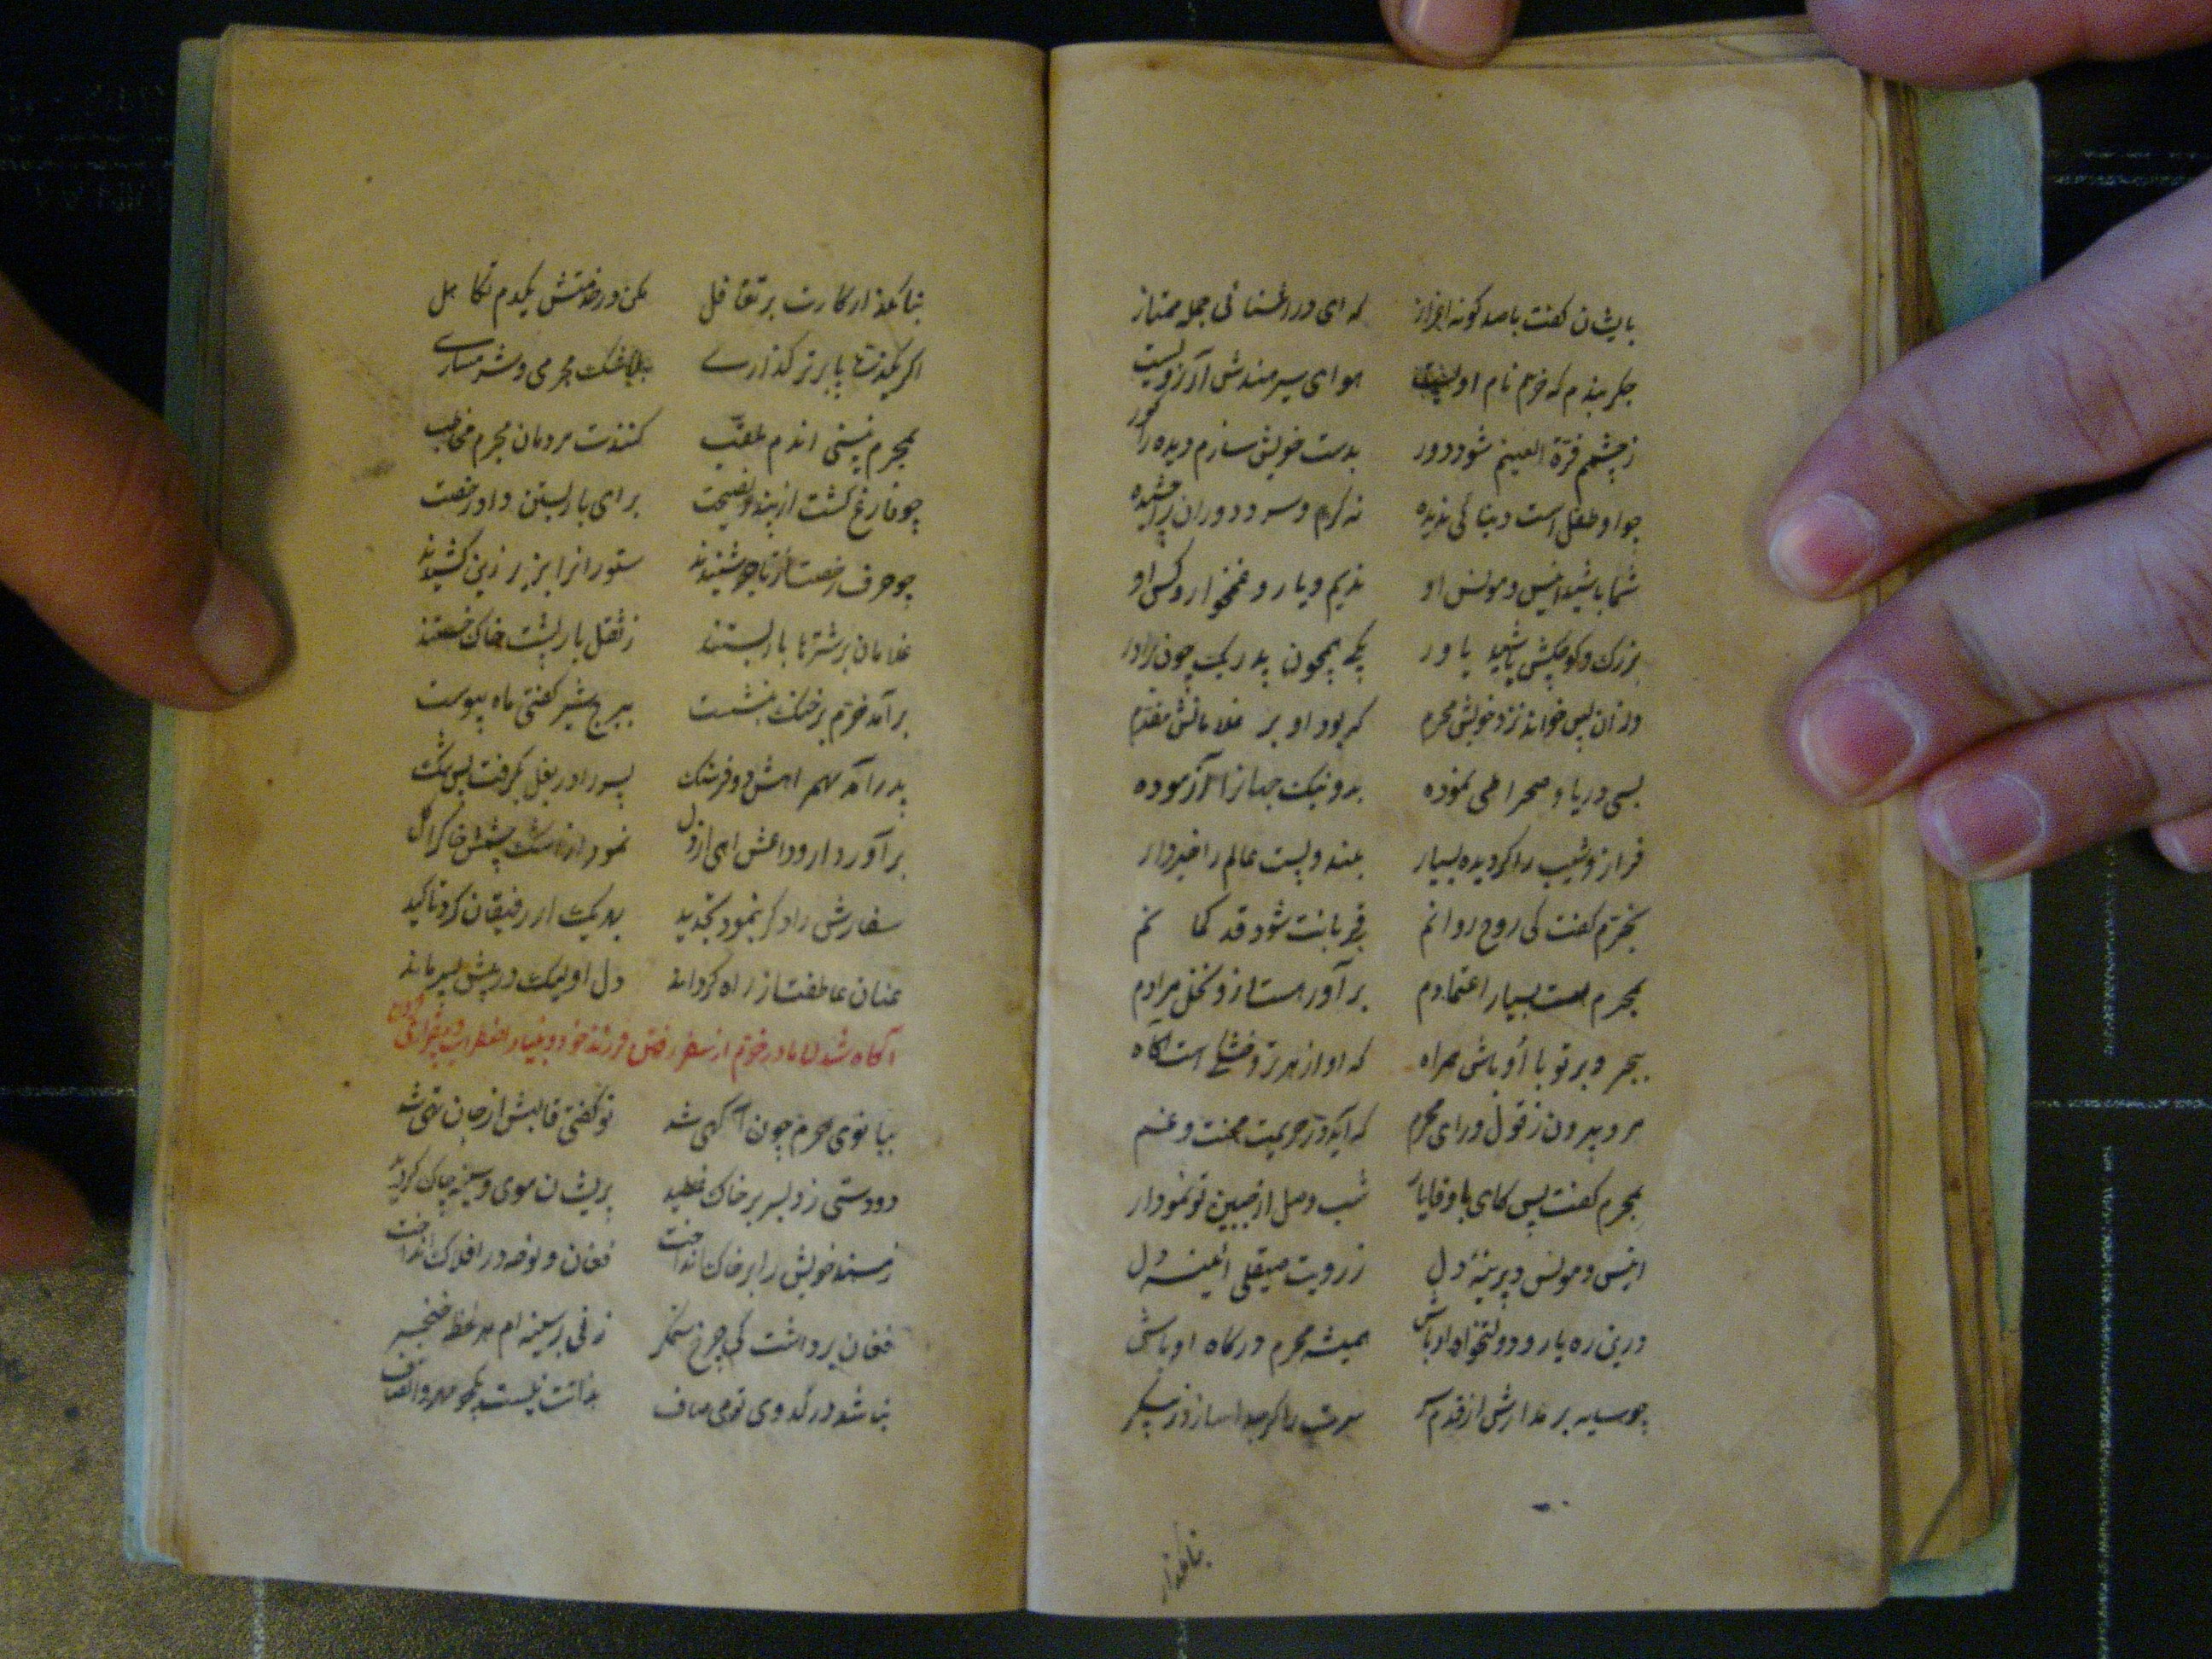 بایشان کفت باصد کونه اعزاز که ای در اشنائی جمله ممتاز
جکر بندم که خرم نام او هوای سیر هندش آرزو
زچشمم قرة العینم شود دور بدست خویش سازم دیده را کور
چو او طفل است دنیا کی ندیده نه کرم و سرد دوران را چشیده
شما باشید انیس و مونس او ندیم و یار و غمخوار و کس او
بزرک و کوچکش باشید یاور یکی همچون پدر یک چون برادر
وزان پس خواند نزد خویش محرم که بود او بر غلامانش مقدم
بسی دریا و صحرا طی نموده بد و نیک جهانرا آزموده
فراز و شیب را کردیده بسیار بلند و پست عالم را خبردار
بخرم کفت کی روح روانم بقربانت شود قد کمانم
بمحرم هست بسیار اعتمادم برآورهست ازو نخل مرادم
بهر دبر تو با او باش همراه که او از هر ترو خشکی است آکاه
مرو بیرون ز قول و رای محرم که آید در حریمت محنت و غم
بمحرم کفت پس کای با وفا یار شب وصل از جبین تو نمودار
انیس و مونس دیرینه دل ز رویت صیقلی ائینه دل
درین ره یار و دولتخواه او باش همیشه محرم درکاه او باش
چو سایه بر مدارش از قدم سر سرت را کر جدا سازد ز پیکر
بنا کذار
بنا کذار کارت بر تغافل مکن در خدمتش یکدم تکاهل
اکر یکذره پا برتر کذاری محرمی و شرمساری
بمحرم نیستی اندم ملقب کنندت مردمان مجرم مخاطب
چو فارغ کشت از پند و نصیحت برای بار بستن داد رخصت
چو حرف رخصت از تاجر شنیدند ستورانرا بزیر زین کشیدند
غلامان بر شترها بار بستند ز ثقل بار پشت خاک خستند
برآمد خرم بر خنک بنشست ببرج شیر کفتی ماه پیوست
پدر آمد بهمراهش دو فرسنک پسر را در بغل بکرفت پس تنک
برآورد از وداعش اهی از دل نمود از اشک چشمش خاک را کل
سفارش را دکر بنمود تجدید بهر یک از رفیقان کرد تاکید
عنان عاطفت از راه کرداند دل او لیک در پیش پسر ماند
آکاه شدن مادر خرم از سفر رفتن فرزند خود و بنیاد اضطراب و بیقراری کردن
ببانوی حرم چون آکهی شد تو کفتی قالبش از جان تهی شد
دو دستی زد بسر بر خاک غلطید پریشان موی و سینه چاک کردید
ز مسند خویش را بر خاک انداخت فغان و نوحه در افلاک انداخت
فغان برداشت کی چرخ ستمکر زنی بر سینه ام هر لحظه خنجر
نباشد در کدوی تو می صاف بذاتت نیست یکجو مهر و انصاف